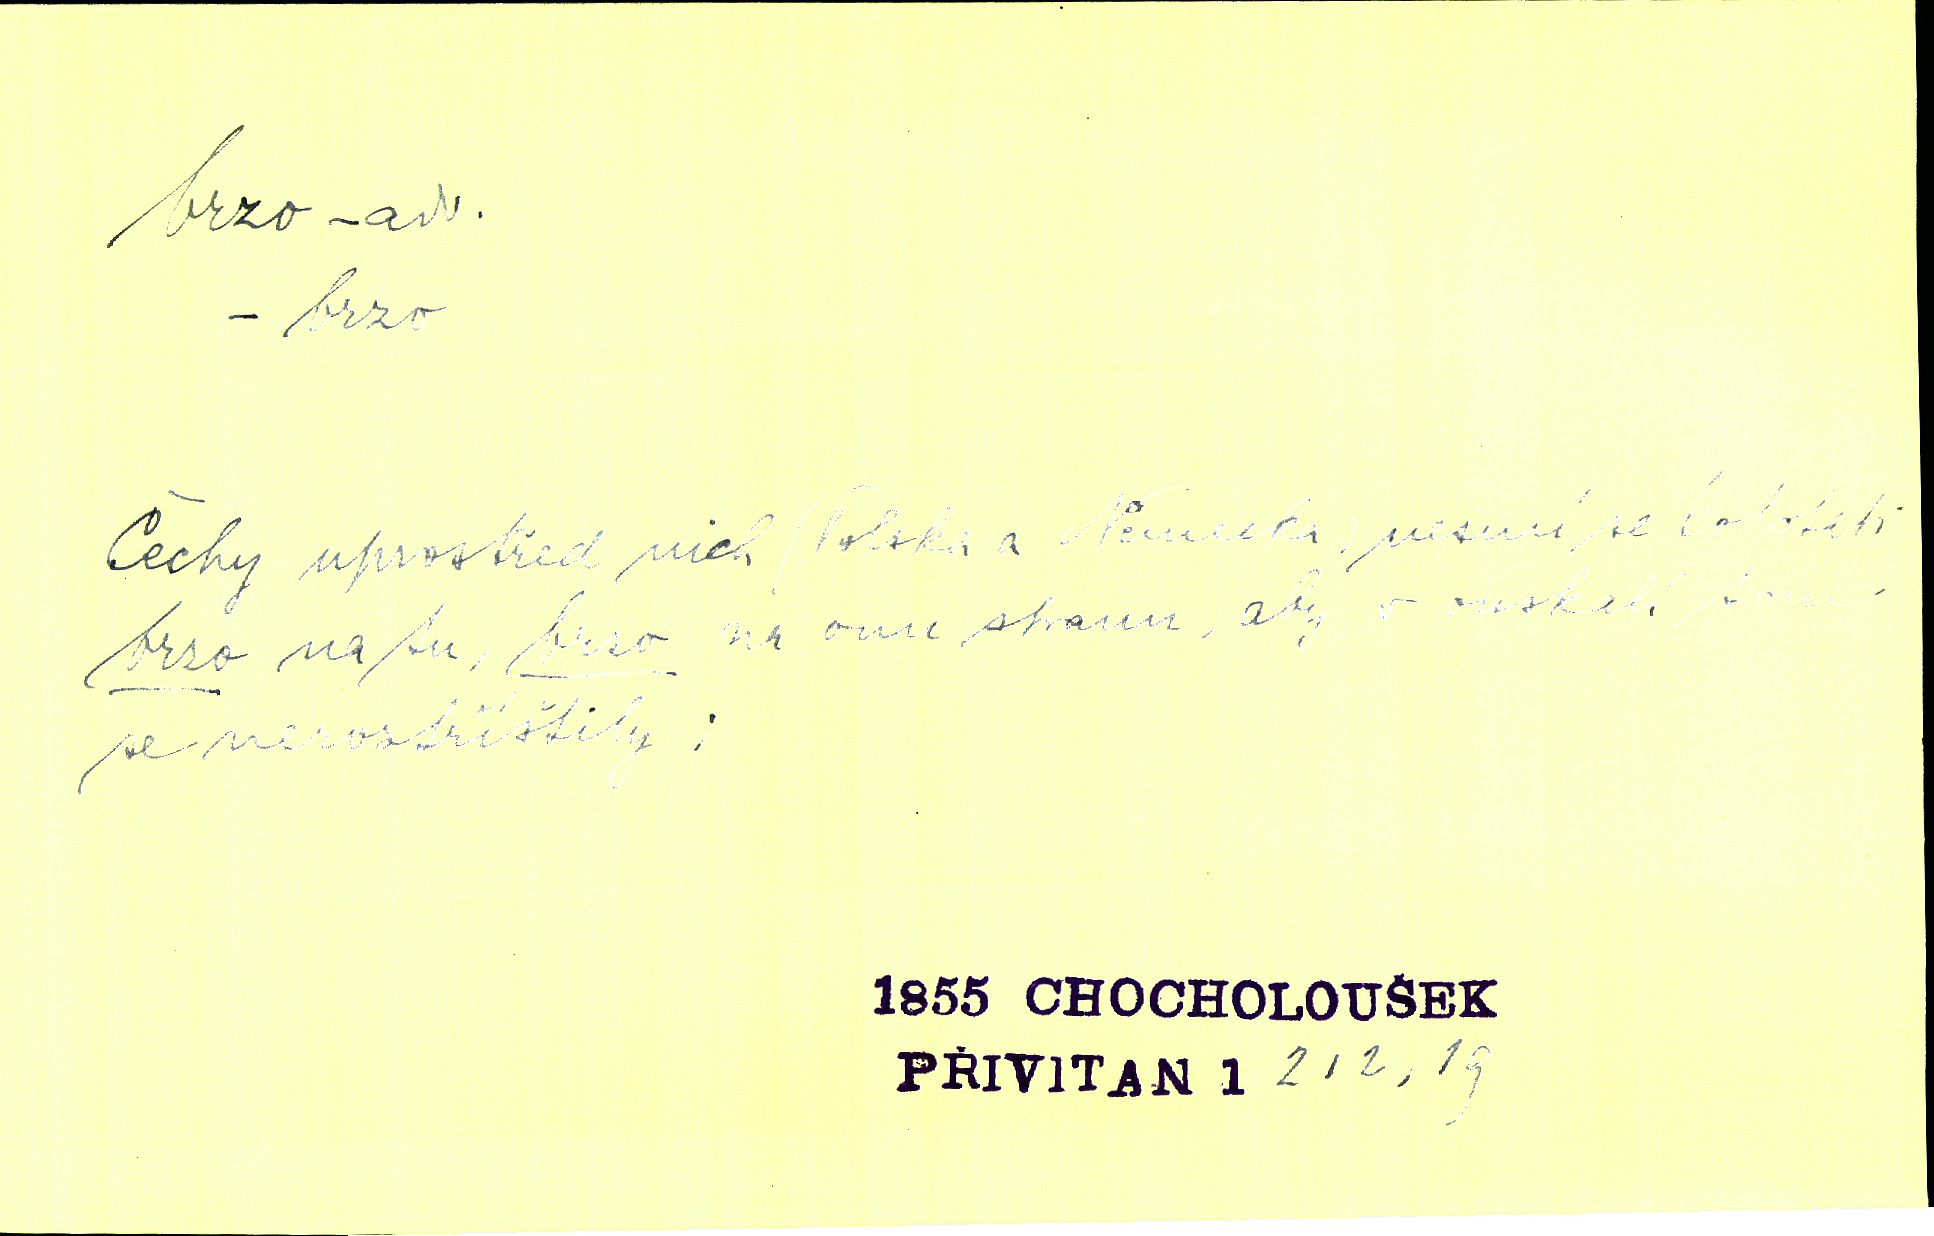 brzo – adv.
– brzo
Čechy uprostřed nich (Polska a Německa) nesmí se
brzo na tu, brzo na onu stranu, aby v ouskalí tom
se nerostříštily;
1855 CHOCHOLOUŠEK
PŘIVITAN 1 212, 19